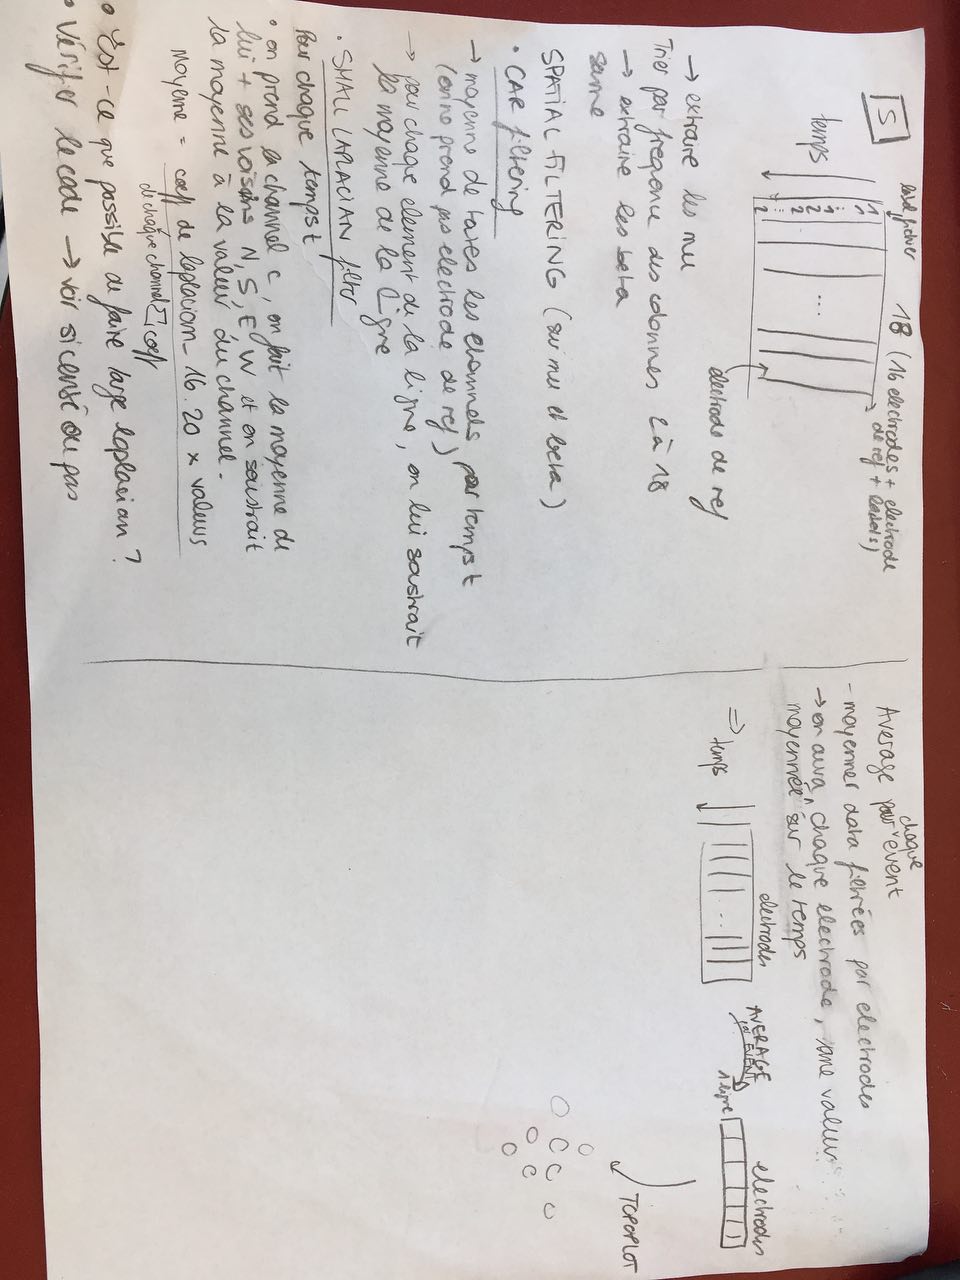 S
label fichier
18 (16 electrodes + electrode
de ref + labels)
temps
1
1
:
1
2
2
:
2
...
electrode de ref
→ extraire les mu
Trier par frequence des colonnes 2 à 18
→ extraire les beta
same
SPATIAL FILTERING (sur mu et beta)
• CAR filtering
→ moyenne de toutes les channels par temps t
(on ne prend pas electrode de ref)
→ pour chaque element de la ligne, on lui soustrait
la moyenne de la ligne
• SMALL LAPLACIAN filter
Pour chaque temps t
• on prend la channel c, on fait la moyenne de
lui + ses voisins N, S, E, W et on soustrait
la moyenne à la valeur du channel.
moyenne = coeff de laplacian_16.20 x valeurs
de chaque channel Σ coeff
• Est-ce que possible de faire large laplacian ?
• Vérifier le code → voir si censé ou pas
Average pour chaque event
- moyenner data filtrées par electrodes
→ on aura, chaque electrode, une valeur
moyennée sur le temps
⇒ temps
electrodes
...
AVERAGE
par EVENT
1 ligne
electrodes
TOPOPLOT